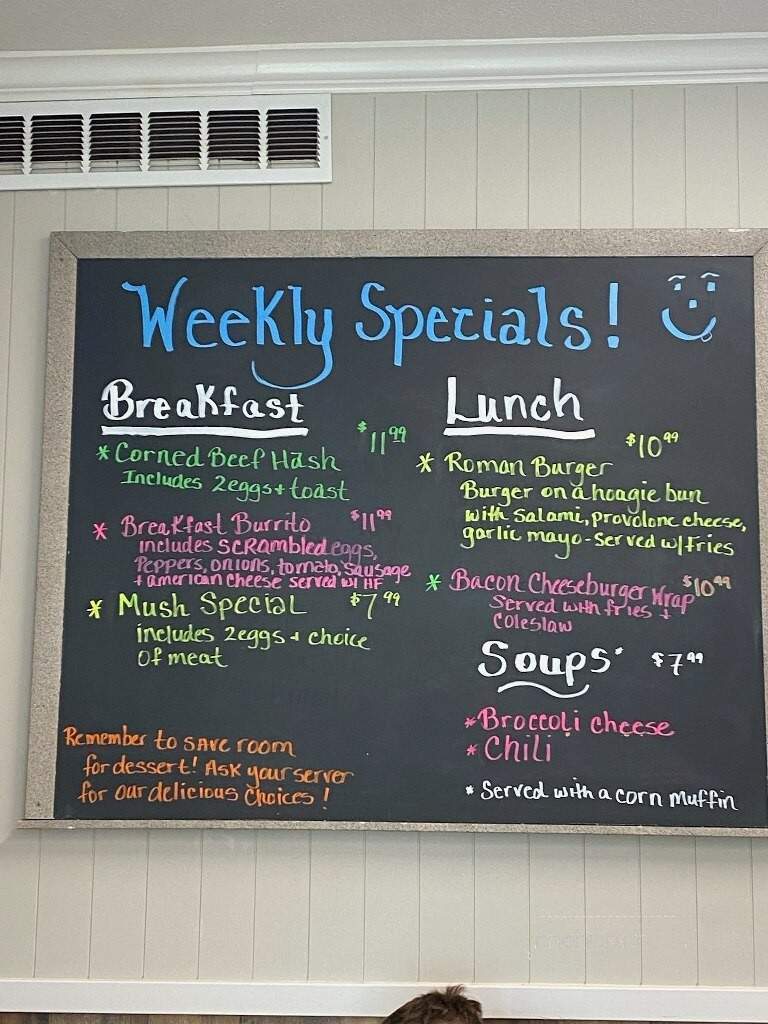 Weekly Specials!
Breakfast
* Corned Beef Hash $11.99
Includes 2eggs + toast
* Breakfast Burrito $11.99
includes scrambled eggs,
Peppers, onions, tomato, sausage
+ american cheese served w/ HF
* Mush Special $7.99
includes 2eggs + choice
of meat
Remember to save room
for dessert! Ask your server
for our delicious choices!
Lunch
* Roman Burger $10.99
Burger on a hoagie bun
with salami, provolone cheese,
garlic mayo - served w/ fries
* Bacon Cheeseburger Wrap $10.99
Served with fries +
coleslaw
Soups $7.99
* Broccoli cheese
* Chili
* Served with a corn muffin